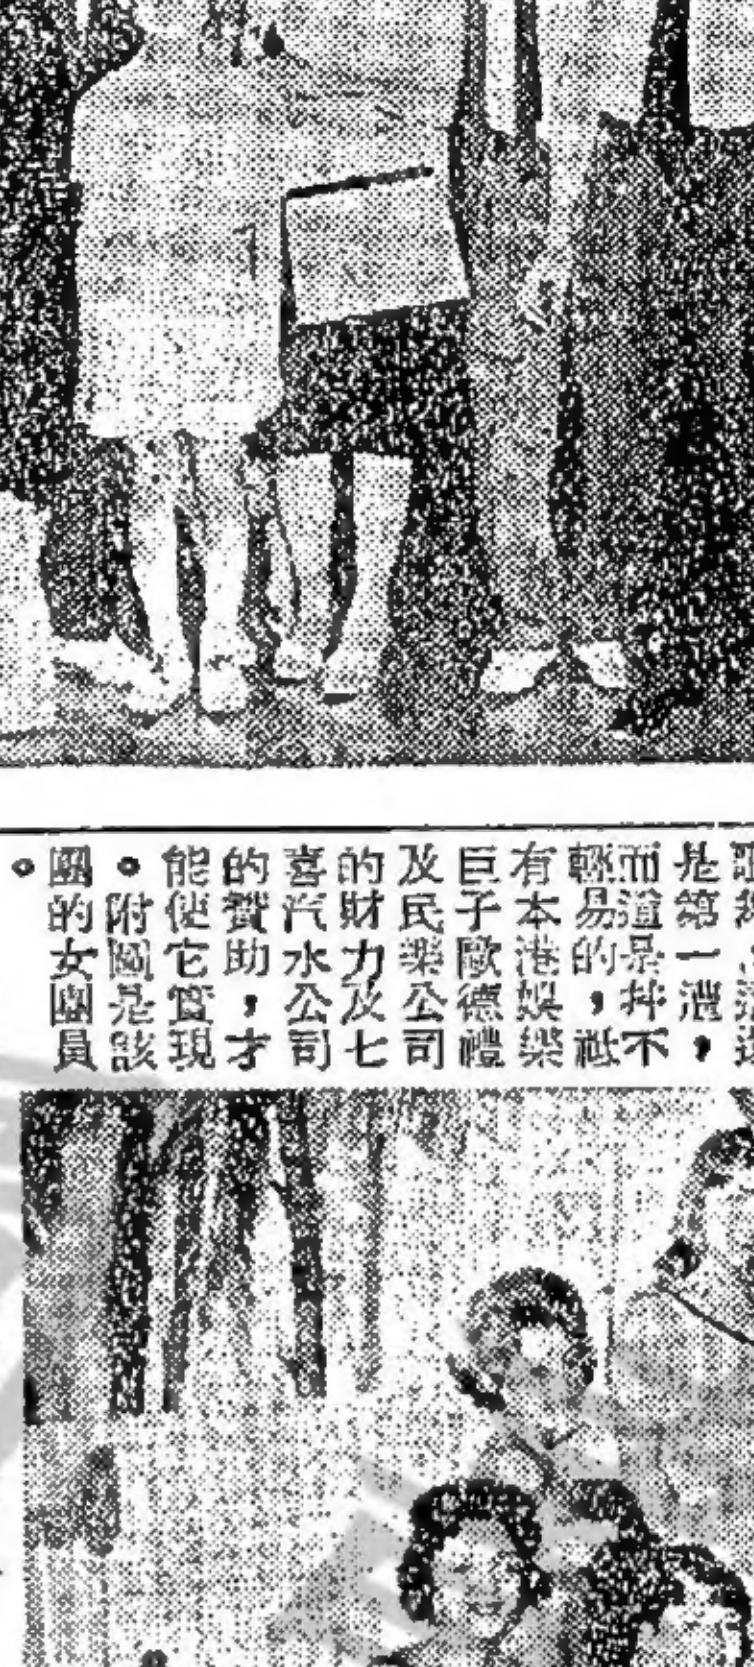 是第一遭，
而這是并不
輕易的，祗
有本港娛樂
巨子歐德禮
及民樂公司
的財力及七
喜汽水公司
的贊助，才
能使它實現
。附圖是該
團的女團員
。